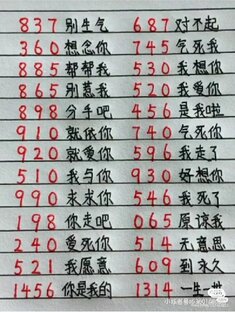 837 别生气 687 对不起
360 想念你 745 气死我
885 帮帮我 530 我想你
865 别惹我 520 我爱你
898 分手吧 456 是我啦
910 就依你 740 气死你
920 就爱你 596 我走了
510 我与你 930 好想你
990 求求你 546 我死了
198 你走吧 065 原谅我
240 爱死你 514 无意思
521 我愿意 609 到永久
1456 你是我的 1314 一生一世